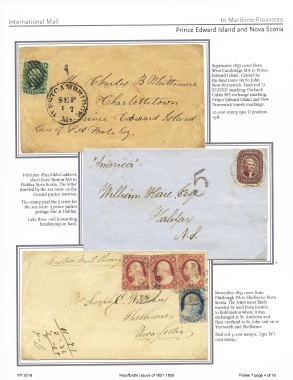 International Mail
to Maritime Provinces
Prince Edward Island and Nova Scotia
September 1857 cover from
West Cambridge MA to Prince
Edward Island. Carried by
the land route via Saint John
New Brunswick.
STATES" marking. On back
exchange marking,
Prince Edward Island and New
Brunswick transit markings.
10 cent stamp type II position
WEST CAMBRIDGE
SEP
17
Ms.
Charles B Whittemore
Charlottetown
Prince Edward Island
Care of
February folded address
sheet from Boston MA to
Halifax Nova Scotia. The letter
traveled by the sea route on the
Cunard packet America.
The stamp paid the 5 cents for
the sea route. 5 pence packet
postage due at Halifax.
forwarding
handstamp on back.
"America"
5
William Hare Esq
Halifax
N.S.
November cover from
Pittsburgh PA to Shelburne Nova
Scotia. The letter most likely
traveled by land from Boston
to Robbinston where it was
exchanged to St. Andrews and
then overland to St. John and on to
Yarmouth and Shelburne.
Dull red 3 cent stamps: Type IV 1
cent stamp.
Mr.
Shelburne
Nova Scotia
NY 2016
Imperforate Issues of 1851-1856
Frame 1 page 4 of 16